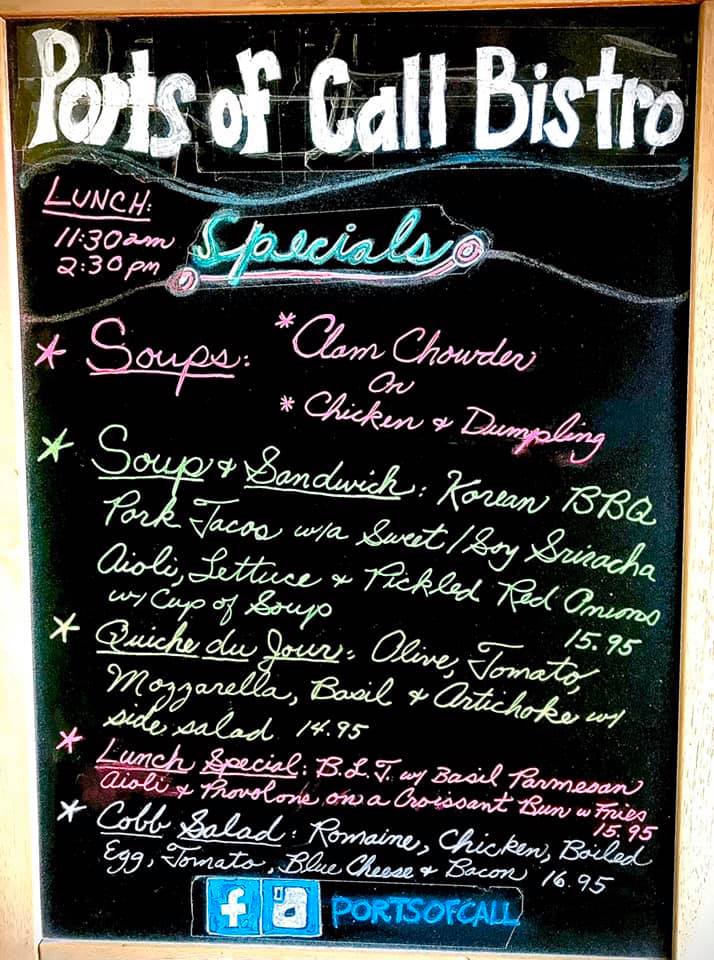 Ports of Call Bistro
LUNCH:
11:30am
2:30pm
Specials
* Soups: * Clam Chowder
Or
* Chicken & Dumpling
* Soup & Sandwich: Korean BBQ
Pork Tacos w/a Sweet/Soy Sriracha
Aioli, Lettuce & Pickled Red Onions
w/ Cup of Soup 15.95
* Quiche du Jour: Olive, Tomato,
Mozzarella, Basil & Artichoke w/
side salad. 14.95
* Lunch Special: B.L.T. w/ Basil Parmesan
Aioli & Provolone on a Croissant Bun w Fries
15.95
* Cobb Salad: Romaine, Chicken, Boiled
Egg, Tomato, Blue Cheese & Bacon 16.95
f PORTSOFCALL